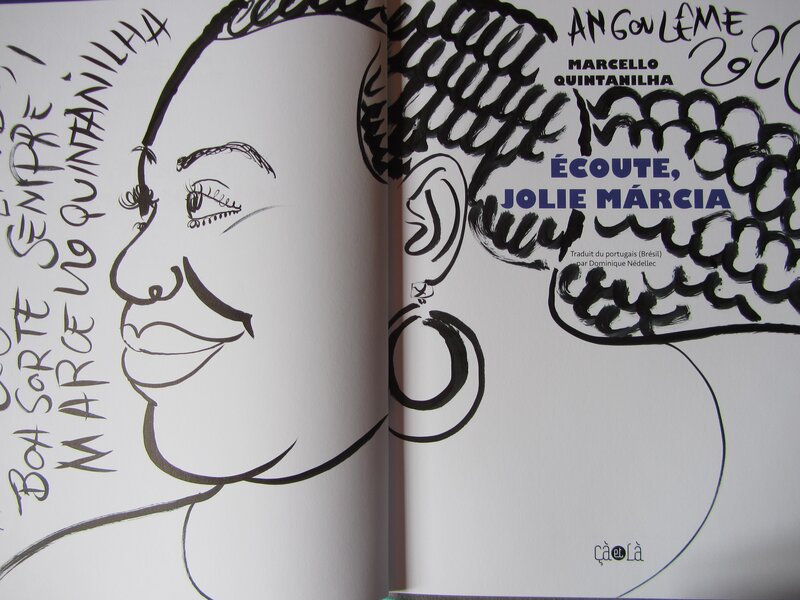 BOA SORTE SEMPRE!
MARCELLO QUINTANILHA
ANGOULÊME
MARCELLO
QUINTANILHA
ÉCOUTE,
JOLIE MÁRCIA
Traduit du portugais (Brésil)
par Dominique Nédellec
çà et là